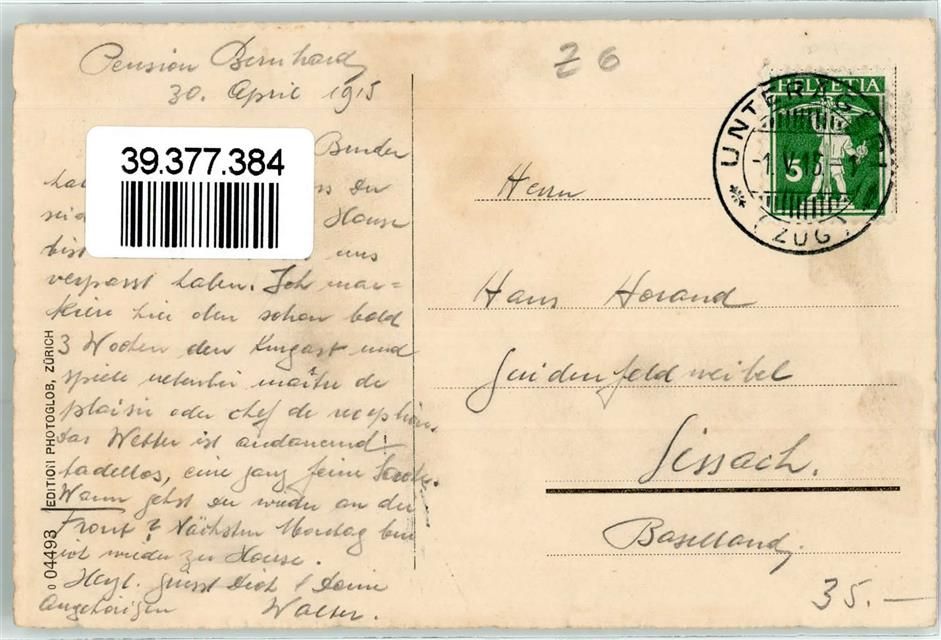 Pension Bernhard
30. April 1915
Z 6
HELVETIA
5
UNTERÄGERI
-1.V.15.-1
(ZUG)
39.377.384
Binder
ss Du
Hause
bist uns
verpasst haben. Ich mar=
kiere hier den schon bald
3 Wochen den Kurgast und
spiele nebenbei maître de
plaisir oder chef de reception.
Das Wetter ist andauernd
tadellos, eine ganz feine
Wann gehst Du wieder an der
Front? Nächsten Montag bin
ich wieder zu Hause.
Hezl. grüsst Dich & Deine
Angehörigen Walter.
Herrn
Hans Horand
Guidenfeldweibel
Sissach.
Baselland.
35.—
0 04493 EDITION PHOTOGLOB, ZÜRICH